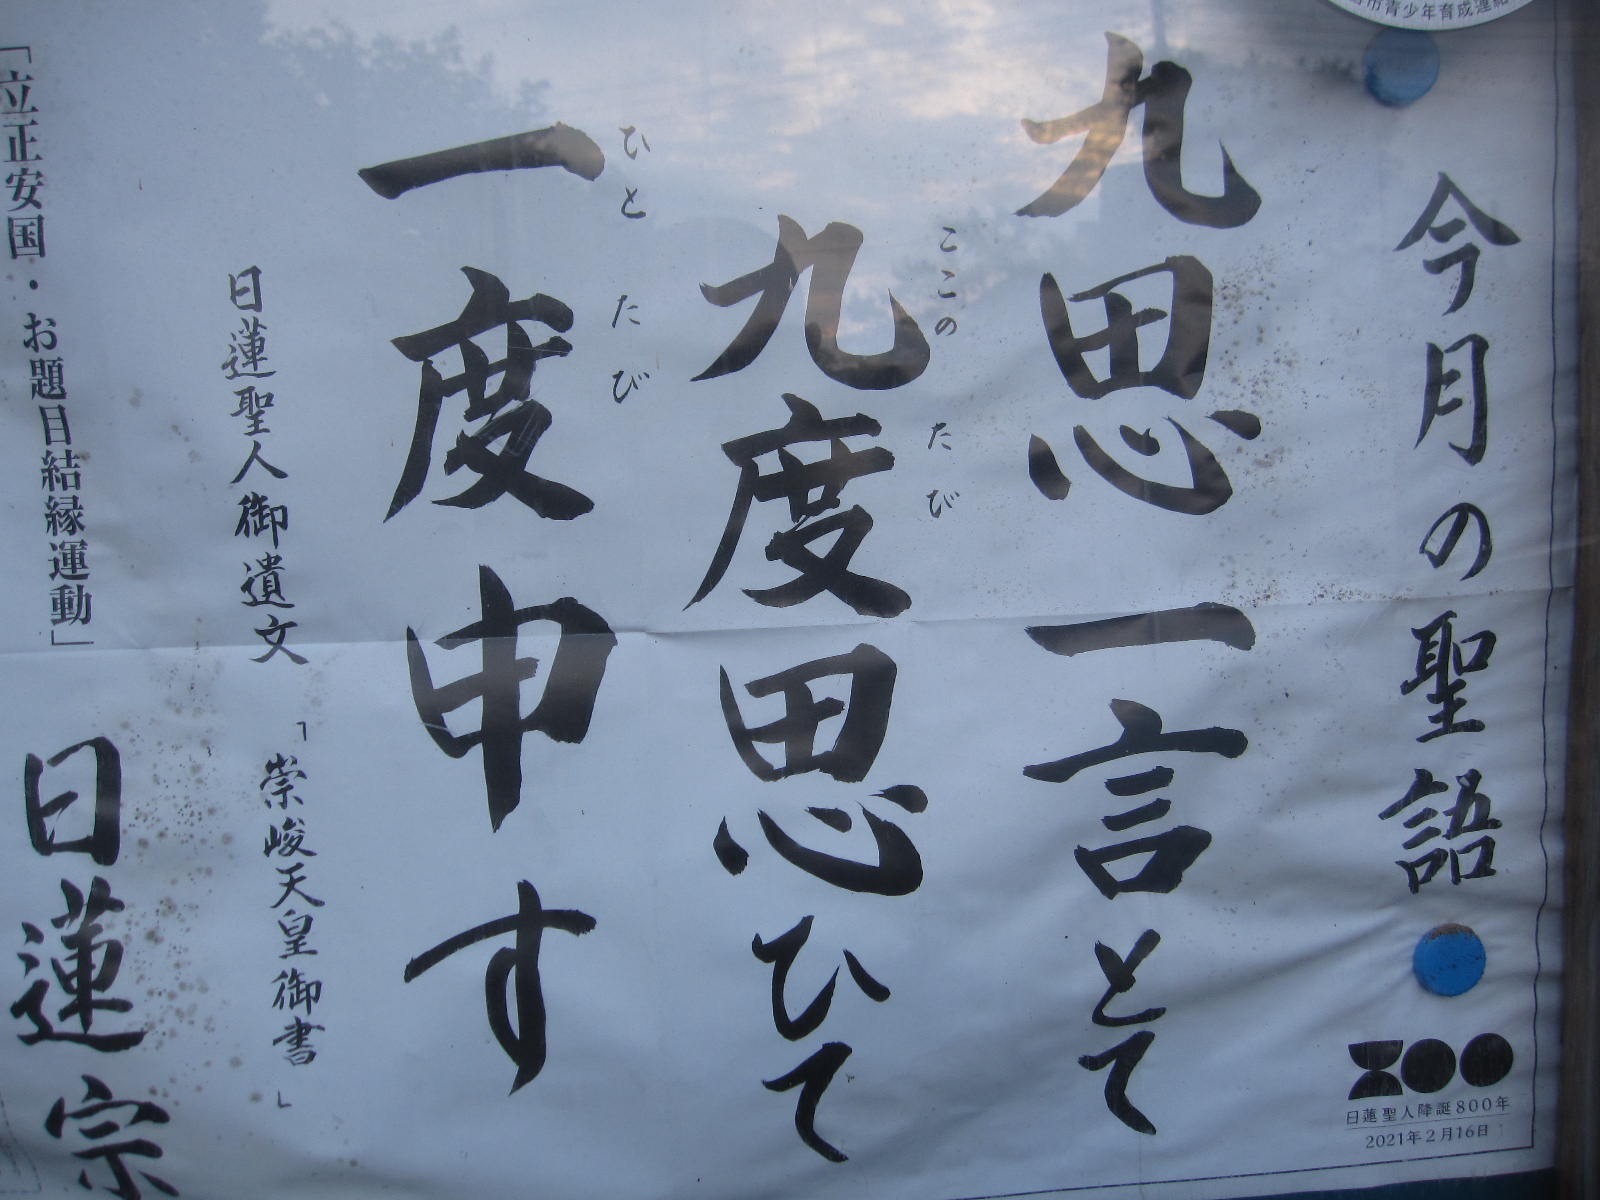 市青少年育成連絡
今月の聖語
九思一言とて
九度思ひて
ここのたび
一度申す
ひとたび
日蓮聖人御遺文
「崇峻天皇御書」
「立正安国・お題目結縁運動」
日蓮宗
800
日蓮聖人降誕800年
2021年2月16日